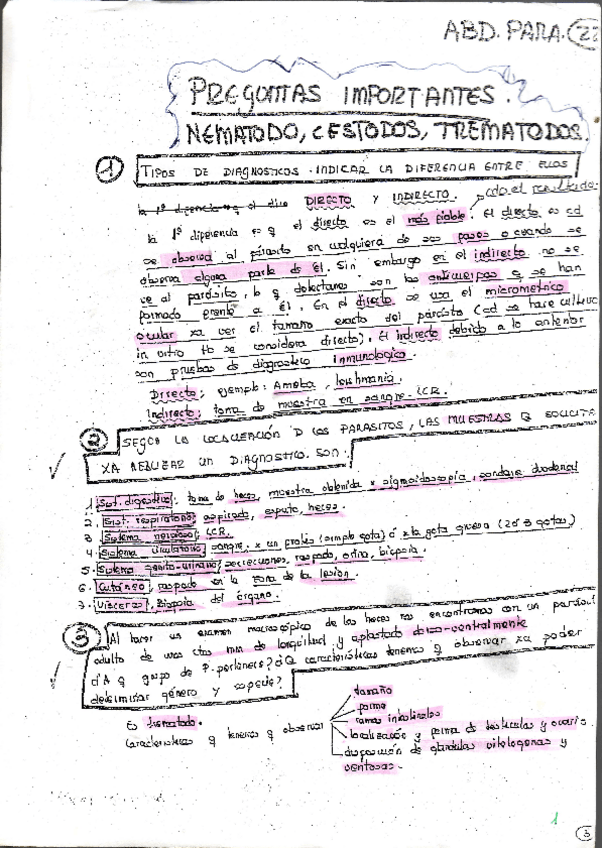 ABD. PARA. 22
PREGUNTAS IMPORTANTES.
NEMATODO, CESTODOS, TREMATODOS
1 TIPOS DE DIAGNOSTICOS. INDICAR LA DIFERENCIA ENTRE ELLOS
DIRECTO y INDIRECTO.
la 1ª diferencia es q el directo es el más fiable. El directo es cd
se observa al parásito en cualquiera de sus fases o cuando se
observa alguna parte de él. Sin embargo en el indirecto no se
ve al parásito, lo q detectamos son los anticuerpos q se han
formado frente a él. En el directo se usa el micrometrico
ocular xa ver el tamaño exacto del parásito (cd se hace cultivo
in vitro tb se considera directo). El indirecto debido a lo anterior
son pruebas de diagnostico inmunologico.
Directo; ejemplo: Ameba, leishmania.
Indirecto; toma de muestra en sangre. LCR.
2 SEGÚN LA LOCALIZACIÓN D LOS PARASITOS, LAS MUESTRAS Q SOLICITA
XA REALIZAR UN DIAGNOSTICO. SON:
1. Sist. digestivo: toma de heces, muestra obtenida x sigmoidoscopia, sondaje duodenal
2. Sist. respiratorio; aspirado, esputo, heces.
3. Sistema nervioso; LCR.
4. Sistema circulatorio; sangre, x un frotis (simple gota) ó x la gota gruesa (2 ó 3 gotas)
5. Sistema genito-urinario; secreciones, raspado, orina, biopsia.
6. Cutáneo; raspado en la zona de la lesion.
7. Visceras; Biopsia del órgano.
3 Al hacer un examen macroscópico de las heces nos encontramos con un parásito
adulto de unos ctos mm de longitud y aplastado dorso-ventralmente
d'A q grupo de P. pertenece? d'Q caracteristicas tenemos q observar xa poder
determinar género y especie?
Es trematodo.
Caracteristicas q tenemos q observar
tamaño
forma
ramas intestinales
localización y forma de testiculos y ovario.
disposición de glándulas vitelogenas y
ventosas.
1
3